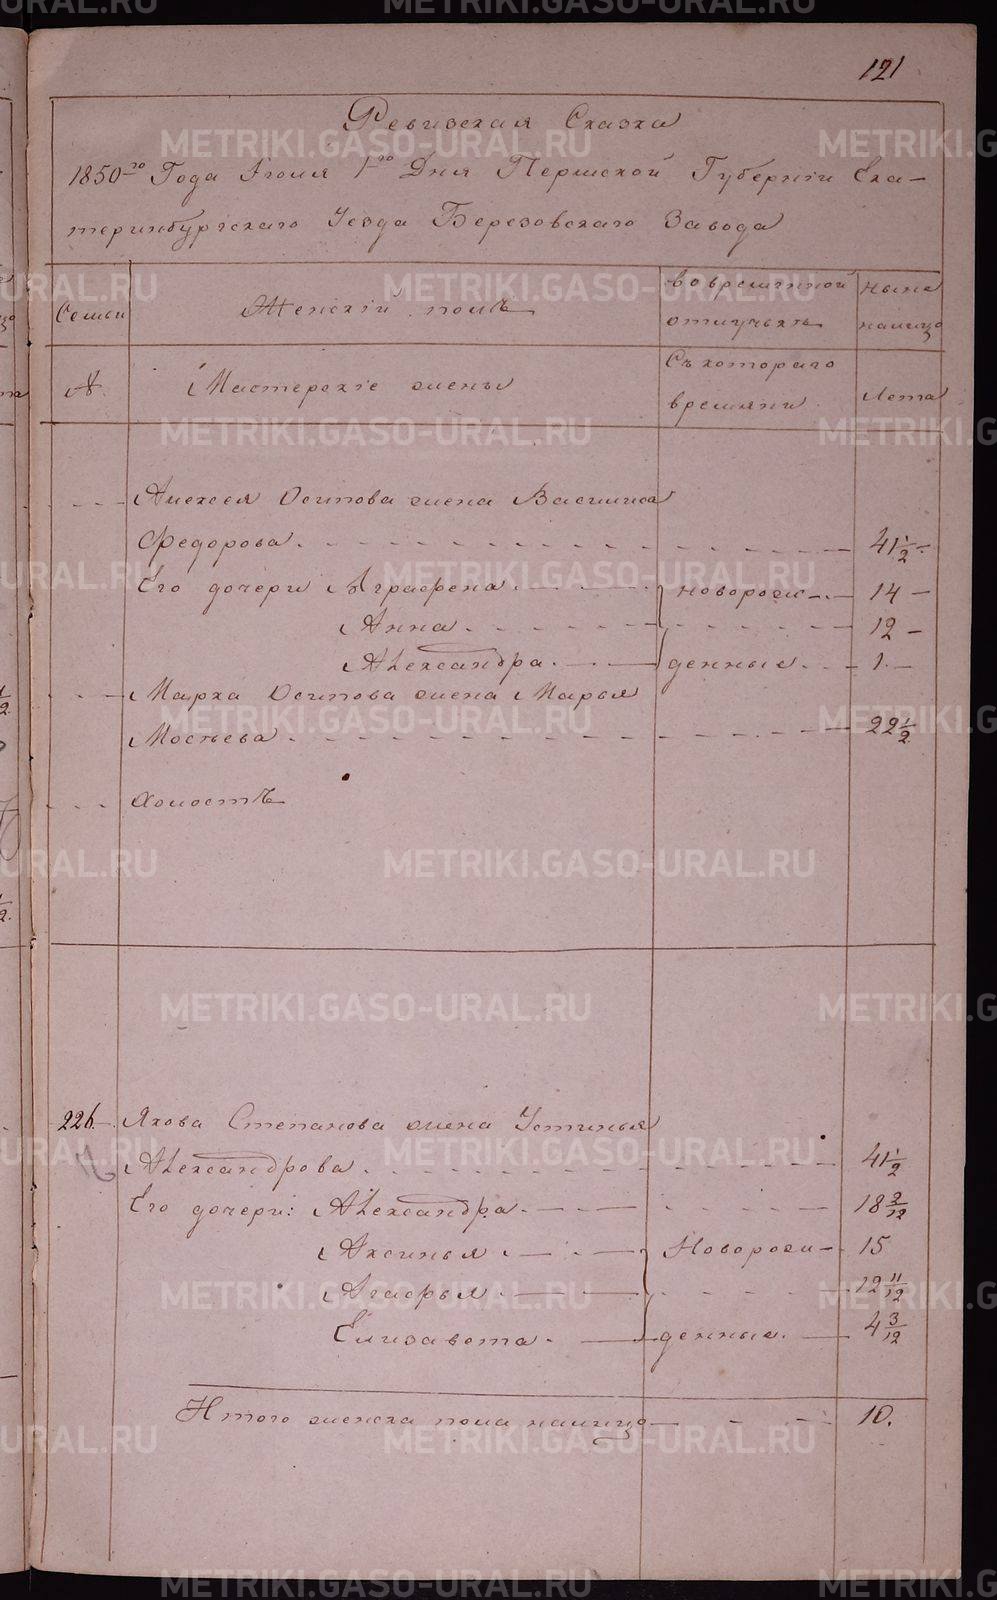 121
Ревизская Сказка
1850го Года Іюля 1го Дня Пермской Губерніи Ека-
теринбургскаго Уезда Березовскаго Завода
Семьи
Женскій полъ
во временной отлучькѣ
ныне налицо
№.
Мастерскіе жены
Съ котораго времяни
Лета
Алексея Осипова жена Василиса
Федорова. 41 1/2
Его дочери Аграфена новорож- 14
Анна 12
Александра денные 1
Марка Осипова жена Марья
22 1/2
Холостъ
226. Якова Степанова жена Устинья
Александрова. 41 1/2
Его дочери: Александра. 18 2/12
Аксинья Новорож- 15
Агафья 12 11/12
Елизавета. денные. 4 3/12
Итого женска пола налицо 10.
METRIKI.GASO-URAL.RU